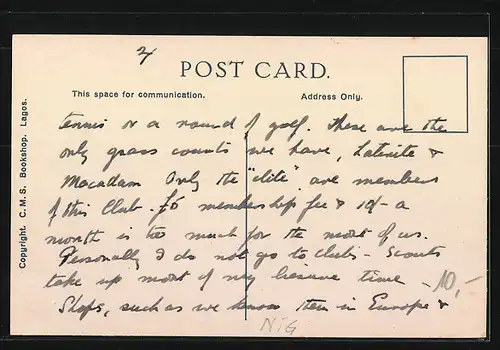 2/
POST CARD.
This space for communication.
Address Only.
Copyright. C. M. S. Bookshop. Lagos.
tennis or a round of golf. These are the
only grass courts we have, Laterite &
Macadam Only the "élite" are members
of this Club. £5 membership fee & 10/- a
month is too much for the most of us.
Personally I do not go to clubs - Scouts
take up most of my leisure time -
Shops, such as we know them in Europe &
10,-
NiG